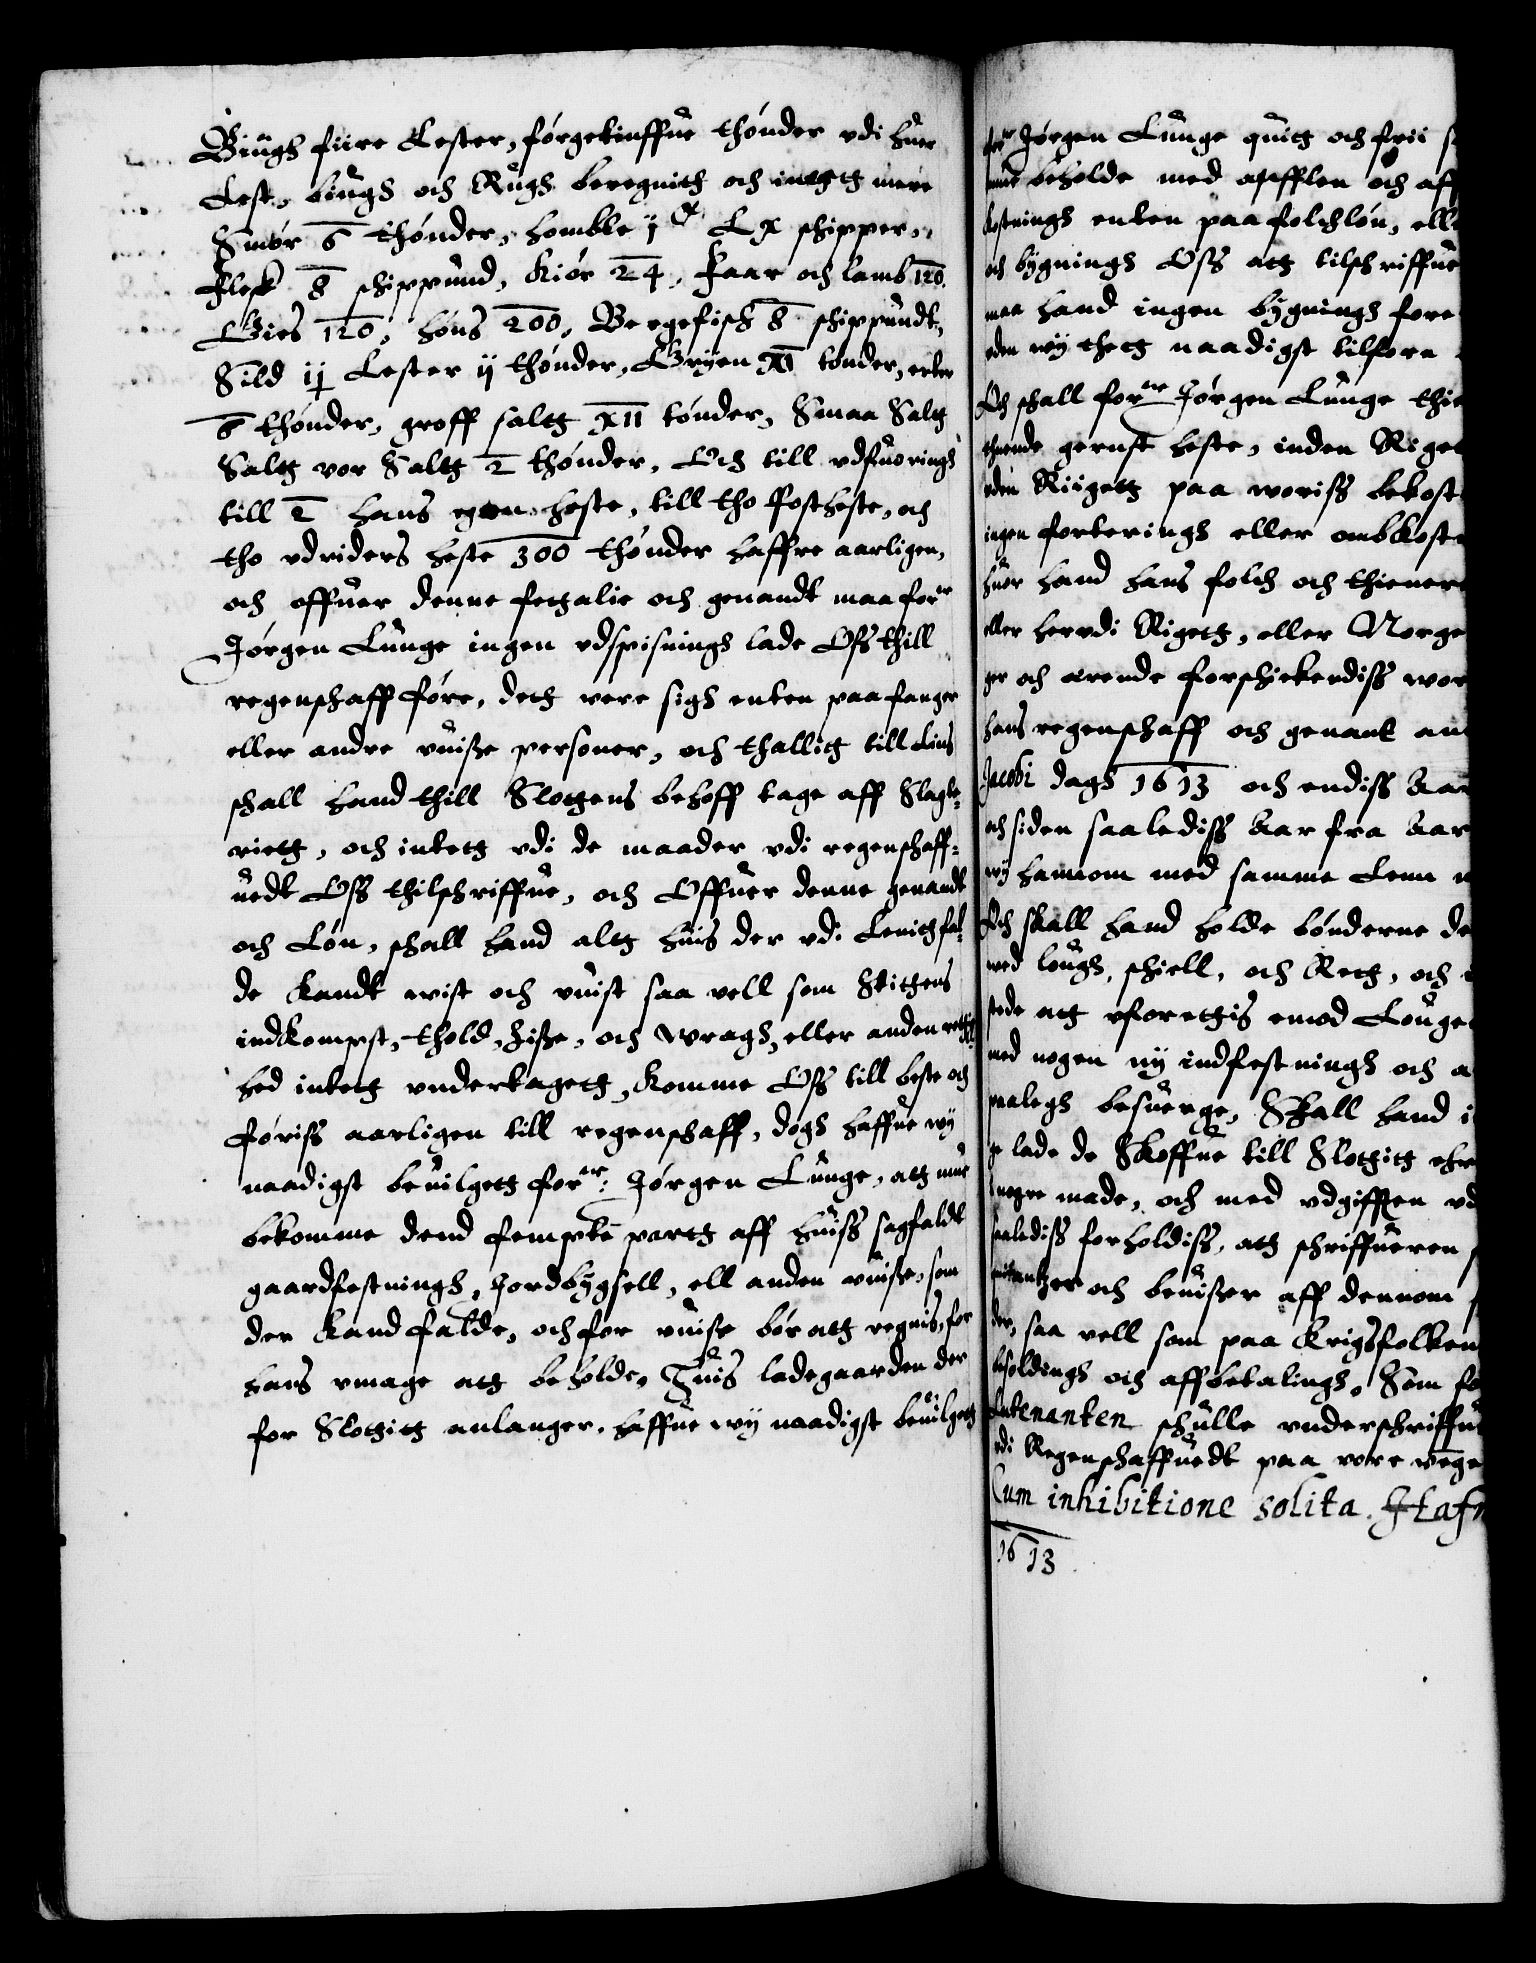 Biugh fiire Lester, førgetiuffue thønder vdi huer
Lest, biugh och Rugh beregnith och inthet mere
Smør 6 thønder, homble j Lx schipper,
Flesk 8 schippund, Kiør 24, Faar och lamb 120.
Gies 120, høns 200, Bergefisch 8 schippundt,
Sild ij Lester ij thønder, Gryen XI tønder, erter
6 thønder, groff saltt XII tønder, Smaa Saltt
Saltt vor Saltt 2 thønder, Och till vdfuoringh
till 2 hans egen heste, till tho Postheste, och
tho vdriders heste 300 thønder haffre aarligen,
och offuer denne fettalie och genandt maa forr
Jørgen Lunge ingen vdspisningh lade Oss thill
regenschaff føre, dett vere sigh enten paa fanger
eller andre uuisse personer, och thallitt till Lius
schall hand thill Slottens behoff tage aff Slagte-
riett, och intett vdi de maader vdi regenschaff-
uedt Oss thilschriffue, och Offuer denne genandt
och Løn, schall hand altt huis der vdi Lenith fal-
de Kandt wist och uuist saa vell som Stittens
indkompst, thold, zisse, och wragh, eller anden rettig-
hed intett undertagett, Komme Oss till beste och
føriss aarligen till regenschaff, dogh haffue wy
naadigst beuilgett forr: Jørgen Lunge, att mue
bekomme dend fempte partt aff huiss sagfaldt
gaardfestningh, Jordbygsell, ell anden uuisse, som
der Kand falde, och for uuisse bør att regnis, for
hans vmage att beholde, Huis ladegaarden der
for Slottitt anlanger, haffue wy naadigst beuilgett
forr Jørgen Lunge quitt och frii
beholde med afuflen och aff
kostningh enten paa folchløn, elle
och bygningh Oss att tilschriffue
maa hand ingen bygningh fore
eden wy thett naadigst tilforn
Och schall forr Jørgen Lunge thie
gerust heste, inden Riget
eden Riigett paa woriss bekost
ingen forteringh eller ombkost
huor hand hans folch och thienere
eller hervdi Rigett, eller Norge
ger och ærende forschickendiss wor
hans regenschaff och genant an
Jacobi dagh 1613 och endiss Aar
och siden saalediss Aar fra Aar
wy hannom med samme Lenn
Och skall hand holde bønderne de
wed lough, schiell, och Rett, och
stede att vforettis emod Louge
med nogen ny indfestningh och a
paalegh besuerge, Skall hand i
ge lade de Skoffue till Slottitt
nogre made, och med vdgifften vd
saalediss forholdiss, att schriffueren
quitantzer och beuisser aff dennom
der, saa vell som paa Krigsfolken
besoldingh och affbetalingh, Som fo
Lutenanten schulle underschriffue
vdi Regenschaffuedt paa vore vege
Cum inhibitione solita. Hafn
1613